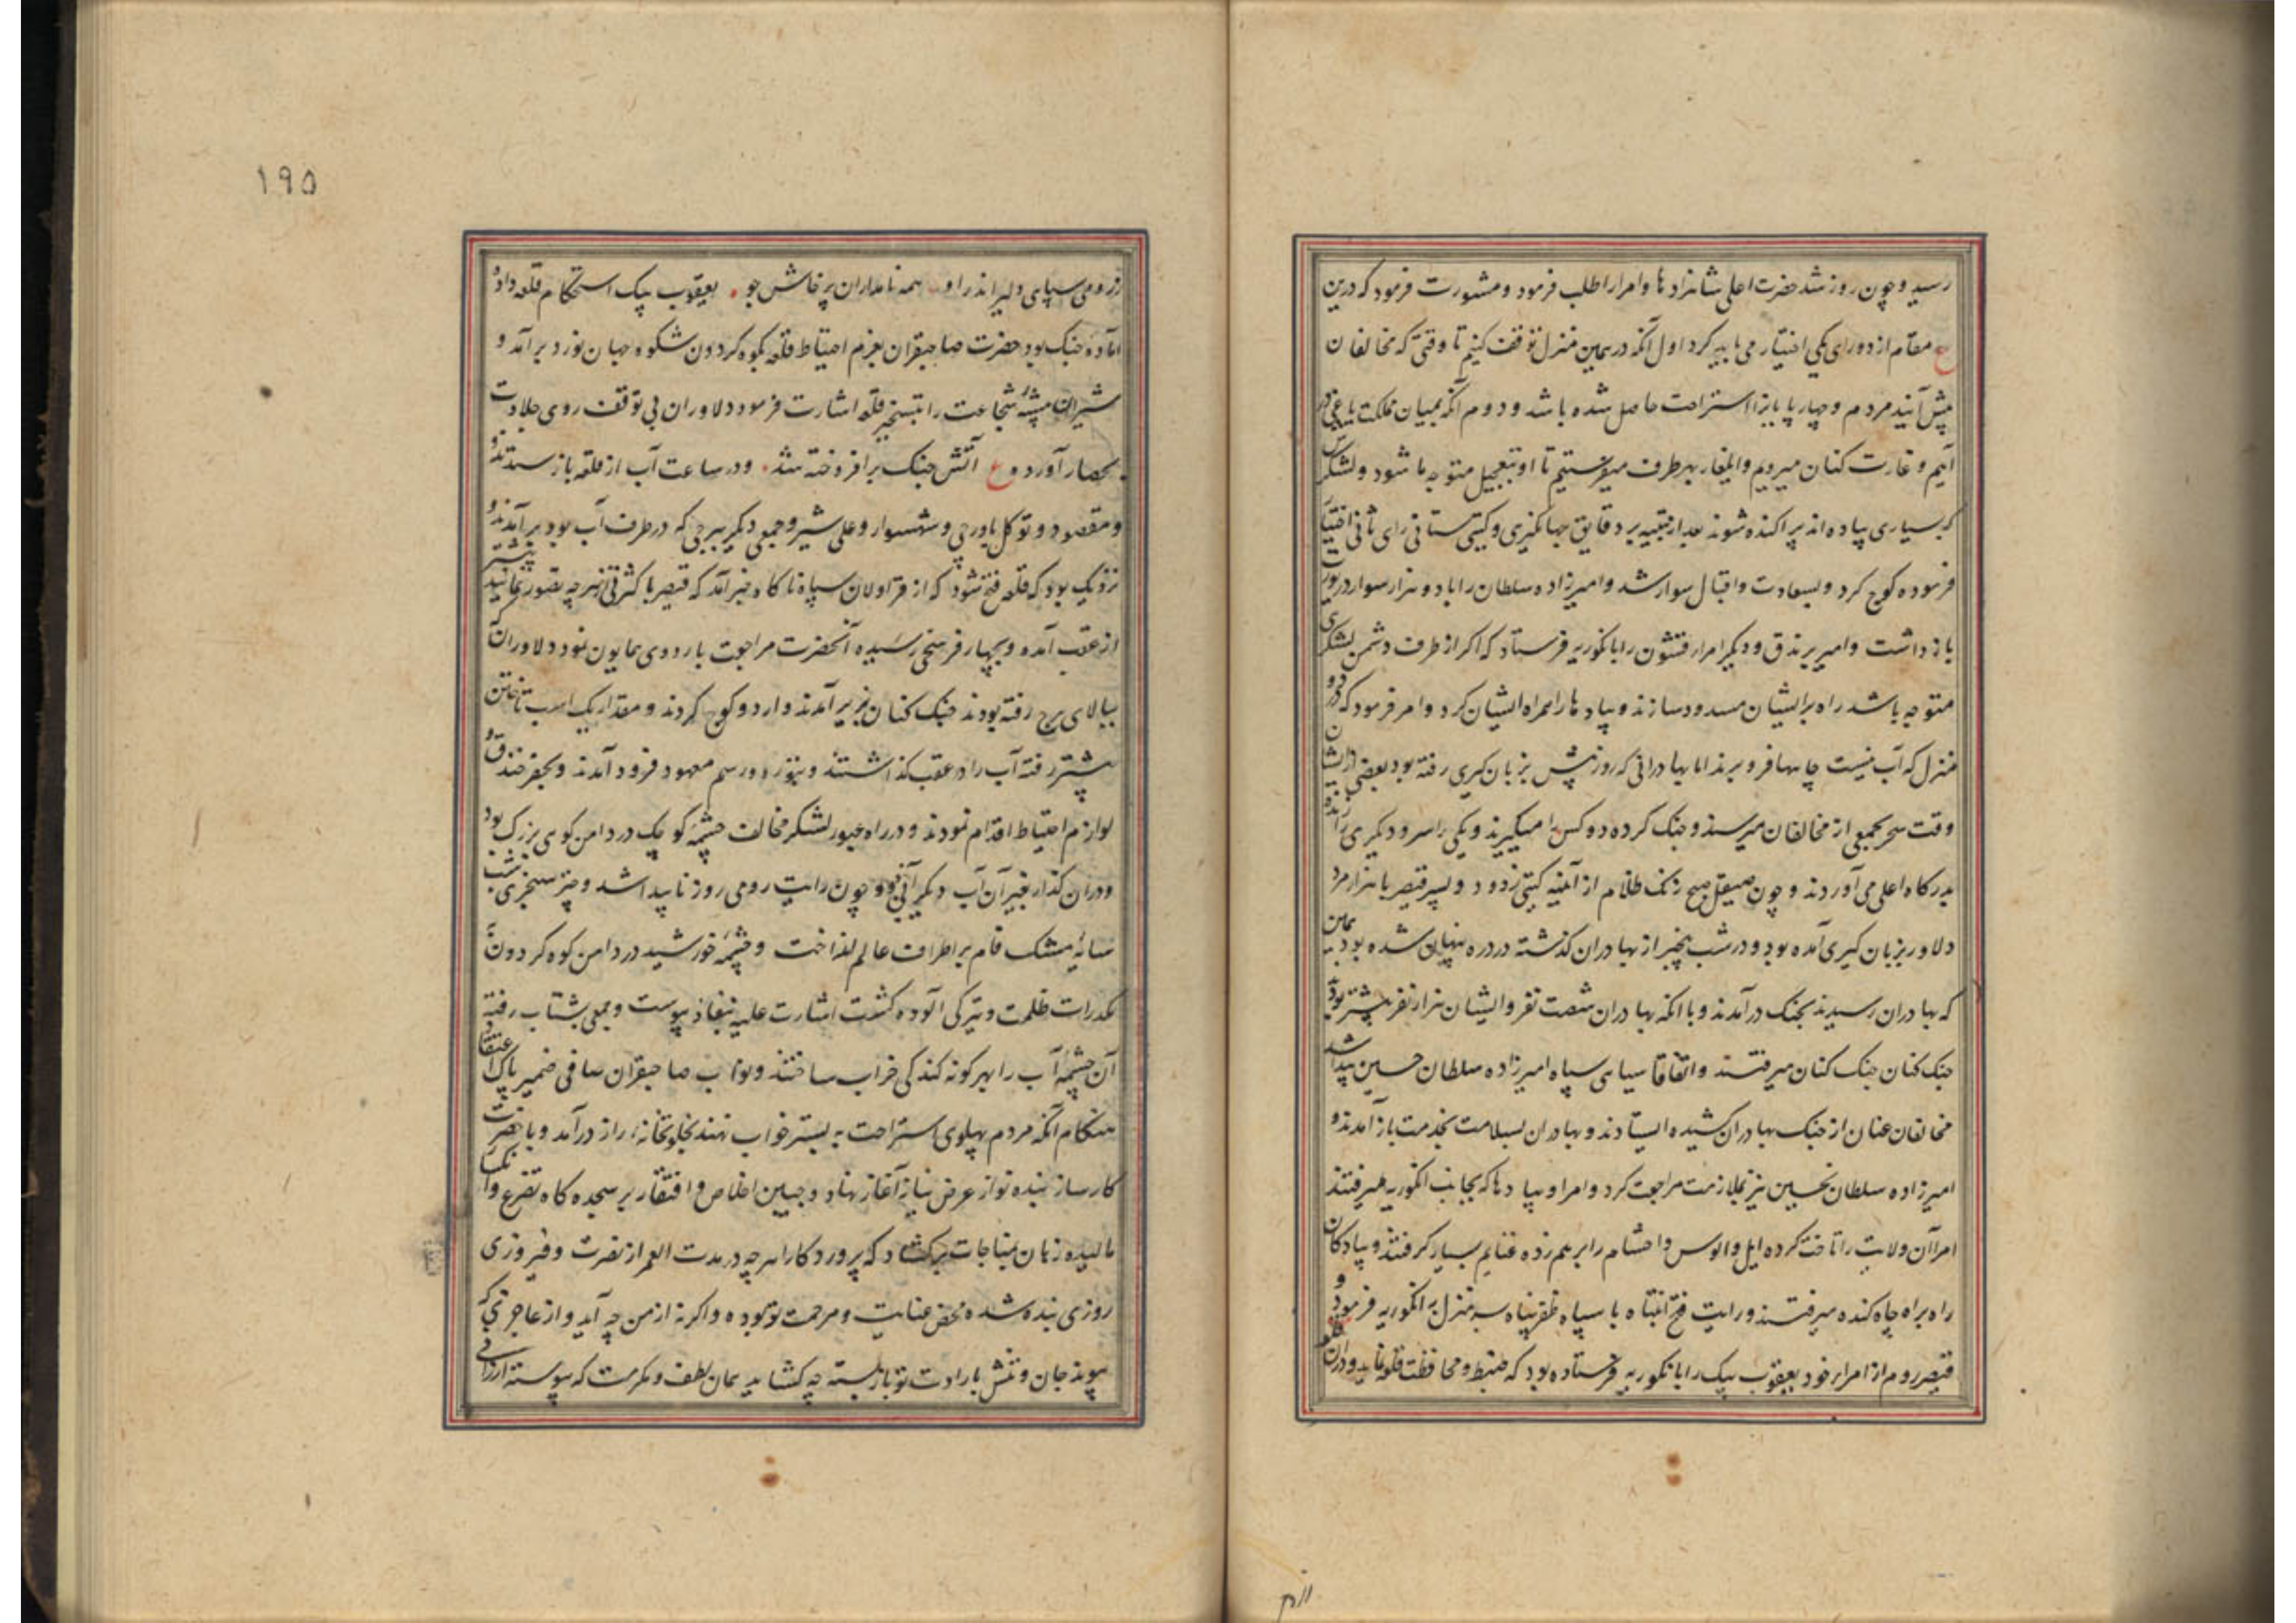 رسید و چون روز شد حضرت اعلی شاهزادها و امرا را طلب فرمود و مشورت فرمود که درین
مقام از دو رای یکی اختیار می باید کرد اول آنکه در همین منزل توقف کنیم تا وقتی که مخالفان
پیش آیند مردم و چهارپایانرا استراحت حاصل شده باشد و دوم آنکه بمیان مملکت یاغی در
آییم و غارت کنان میرویم و ایلغار بهر طرف میفرستیم تا او بتعجیل متوجه ما شود و لشکرش
که بسیاری پیاده اند پراکنده شوند بعد از تنبیه بر دقایق جهانگیری و گیتی ستانی رای ثانی اختیار
فرموده کوچ کرد و بسعادت و اقبال سوار شد و امیرزاده سلطان را با دو هزار سوار در یورت
باز داشت و امیر برندق و دیگر امراء قشون را بانکوریه فرستاد که اگر از طرف دشمن لشکری
متوجه باشد راه بر ایشان مسدود سازند و پیادها را همراه ایشان کرد و امر فرمود که در دو
منزل که آب نیست چاهها فرو برند اما بهادرانی که روز پیش بزبان گیری رفته بود بعضی از ایشان
وقت سحر بجمعی از مخالفان میرسند و جنک کرده دو کس را میگیرند و یکی را سر و دیگری را زنده
بدرگاه اعلی می آوردند و چون صیقل صبح زنک ظلام از آئینه گیتی زدود و پسر قیصر با هزار مرد
دلاور بزبان گیری آمده بود و در شب بیخبر از بهادران گذشته در دره پنهان شده بود همین
که بهادران رسیدند بجنک درآمدند و با آنکه بهادران شصت نفر و ایشان هزار نفر بیشتر بود
جنک کنان جنک کنان میرفتند و اتفاقا سیاهی سپاه امیرزاده سلطان حسین پیدا شد
مخالفان عنان از جنک بهادران کشیده ایستادند و بهادران بسلامت بخدمت باز آمدند و
امیرزاده سلطان حسین نیز بملازمت مراجعت کرد و امرا و پیادها که بجانب انکوریه میرفتند
امرا آن ولایت را تاخت کرده ایل و الوس و احشام را برهم زده غنایم بسیار گرفتند و پیادکان
راه براه چاه کنده میرفتند و رایت فتح انتباه با سپاه ظفرپناه سه منزل به انکوریه فرمود و
قیصر روم از امراء خود یعقوب بیک را بانکوریه فرستاده بود که ضبط و محافظت قلعه نماید و دران قلعه
۱۹۵
ز رومی سپاهی دلیر اندر او همه نامداران پرخاش جو یعقوب بیک استحکام قلعه داده
آماده جنک بود حضرت صاحبقران بعزم احتیاط قلعه بکوه گردون شکوه جهان نورد برآمد و
شیران بیشه شجاعت را بتسخیر قلعه اشارت فرمود دلاوران بی توقف روی جلادت
بحصار آوردند ع آتش جنک برافروخته شد و در ساعت آب از قلعه باز ستدند
و مقصود و توکل باورچی و شهسوار و علی شیر و جمعی دیگر ببرجی که در طرف آب بود برآمدند و
نزدیک بود که قلعه فتح شود که از قراولان سپاه ناکاه خبر آمد که قیصر با کثرتی از هرچه تصور نمایند بیشتر
از عقب آمده و بچهار فرسخی رسیده آنحضرت مراجعت باردوی همایون نمود دلاوران که
ببالای برج رفته بودند جنک کنان بزیر آمدند و اردو کوچ کردند و مقدار یک اسب تاختن
پیشتر رفته آب را در عقب گذاشتند و بتوره و رسم معهود فرود آمدند و بحفر خندق و
لوازم احتیاط اقدام نمودند و در راه عبور لشکر مخالف چشمه کوچک در دامن کوهی بزرگ بود
و دران گذار بغیر آن آب دیگر آبی نبود و چون رایت رومی روز ناپیدا شد و چتر سنجری شب
سایه مشک فام بر اطراف عالم انداخت و چشمه خورشید در دامن کوه گردون به
مکدرات ظلمت و تیرگی آلوده گشت اشارت علیه بنفاذ پیوست و جمعی بشتاب رفته
آن چشمه آب را بهر گونه گندگی خراب ساختند و نواب صاحبقران صافی ضمیر پاک اعتقاد
هنکام آنکه مردم پهلوی استراحت به بستر خواب نهند بخلوتخانه راز درآمد و با حضرت
کارساز بنده نواز عرض نیاز آغاز نهاد و جبین اخلاص و افتقار بر سجده گاه تضرع و انکسار
مالیده زبان بمناجات برکشاد که پروردکارا هرچه در مدت العمر از نصرت و فیروزی
روزی بنده شده محض عنایت و مرحمت تو بوده و اگر نه از من چه آید و از عاجزی که
پیوند جان و تنش بارادت تو باز بسته چه کشاید همان لطف و مکرمت که پیوسته ارزانی